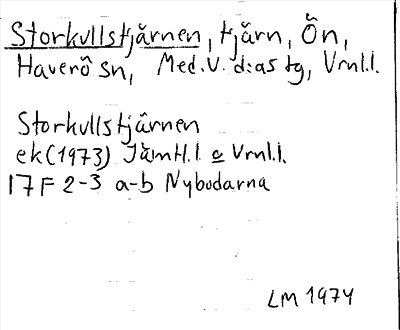 Storkullstjärnen, tjärn, Ön,
Haverö sn, Med.V. d:as tg, Vrnl.l.
Storkullstjärnen
ek (1973) Jämtl.l o Vrnl.l.
17F 2-3 a-b Nybodarna
LM 1974